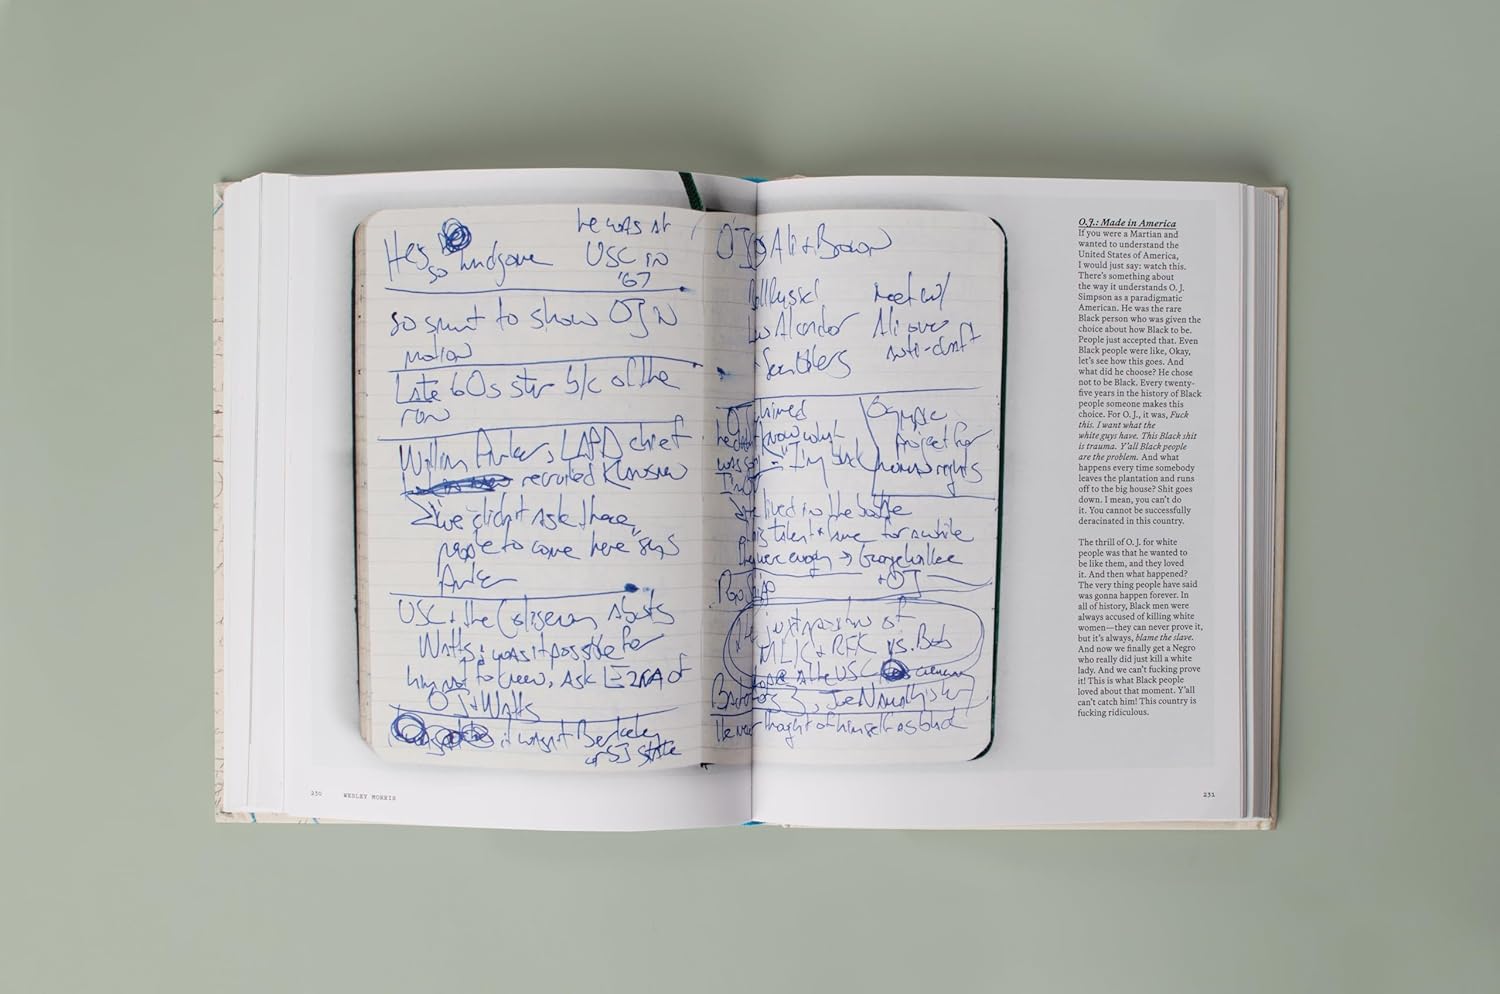 He's so handsome
he was at
USC IN
'67
so smart to show OJ IN
motion
Late 60s star b/c of the
row
William Parker, LAPD chief
recruited Klansmen
"we didn't ask these
people to come here" says
Parker
USC + the Coliseum abuts
Watts; was it possible for
him not to know, Ask EZRA of
OJ + Watts
it wasn't Berkeley
or SJ State
OJ Ali + Brown
Bill Russell
Lew Alcindor
meet w/
Ali over
anti-draft
claimed
he didn't know what
was
"I'm black
Olympic
Project for
human rights
lived in the
his talent + fame for awhile
they were enough → George Wallace
+ OJ
juxtaposition of
MLK + RFK vs. Bob
Hope at the USC
he never thought of himself as black
O.J.: Made in America
If you were a Martian and
wanted to understand the
United States of America,
I would just say: watch this.
There's something about
the way it understands O. J.
Simpson as a paradigmatic
American. He was the rare
Black person who was given the
choice about how Black to be.
People just accepted that. Even
Black people were like, Okay,
let's see how this goes. And
what did he choose? He chose
not to be Black. Every twenty-
five years in the history of Black
people someone makes this
choice. For O. J., it was, Fuck
this. I want what the
white guys have. This Black shit
is trauma. Y'all Black people
are the problem. And what
happens every time somebody
leaves the plantation and runs
off to the big house? Shit goes
down. I mean, you can't do
it. You cannot be successfully
deracinated in this country.
The thrill of O. J. for white
people was that he wanted to
be like them, and they loved
it. And then what happened?
The very thing people have said
was gonna happen forever. In
all of history, Black men were
always accused of killing white
women—they can never prove it,
but it's always, blame the slave.
And now we finally get a Negro
who really did just kill a white
lady. And we can't fucking prove
it! This is what Black people
loved about that moment. Y'all
can't catch him! This country is
fucking ridiculous.
230 WESLEY MORRIS
231